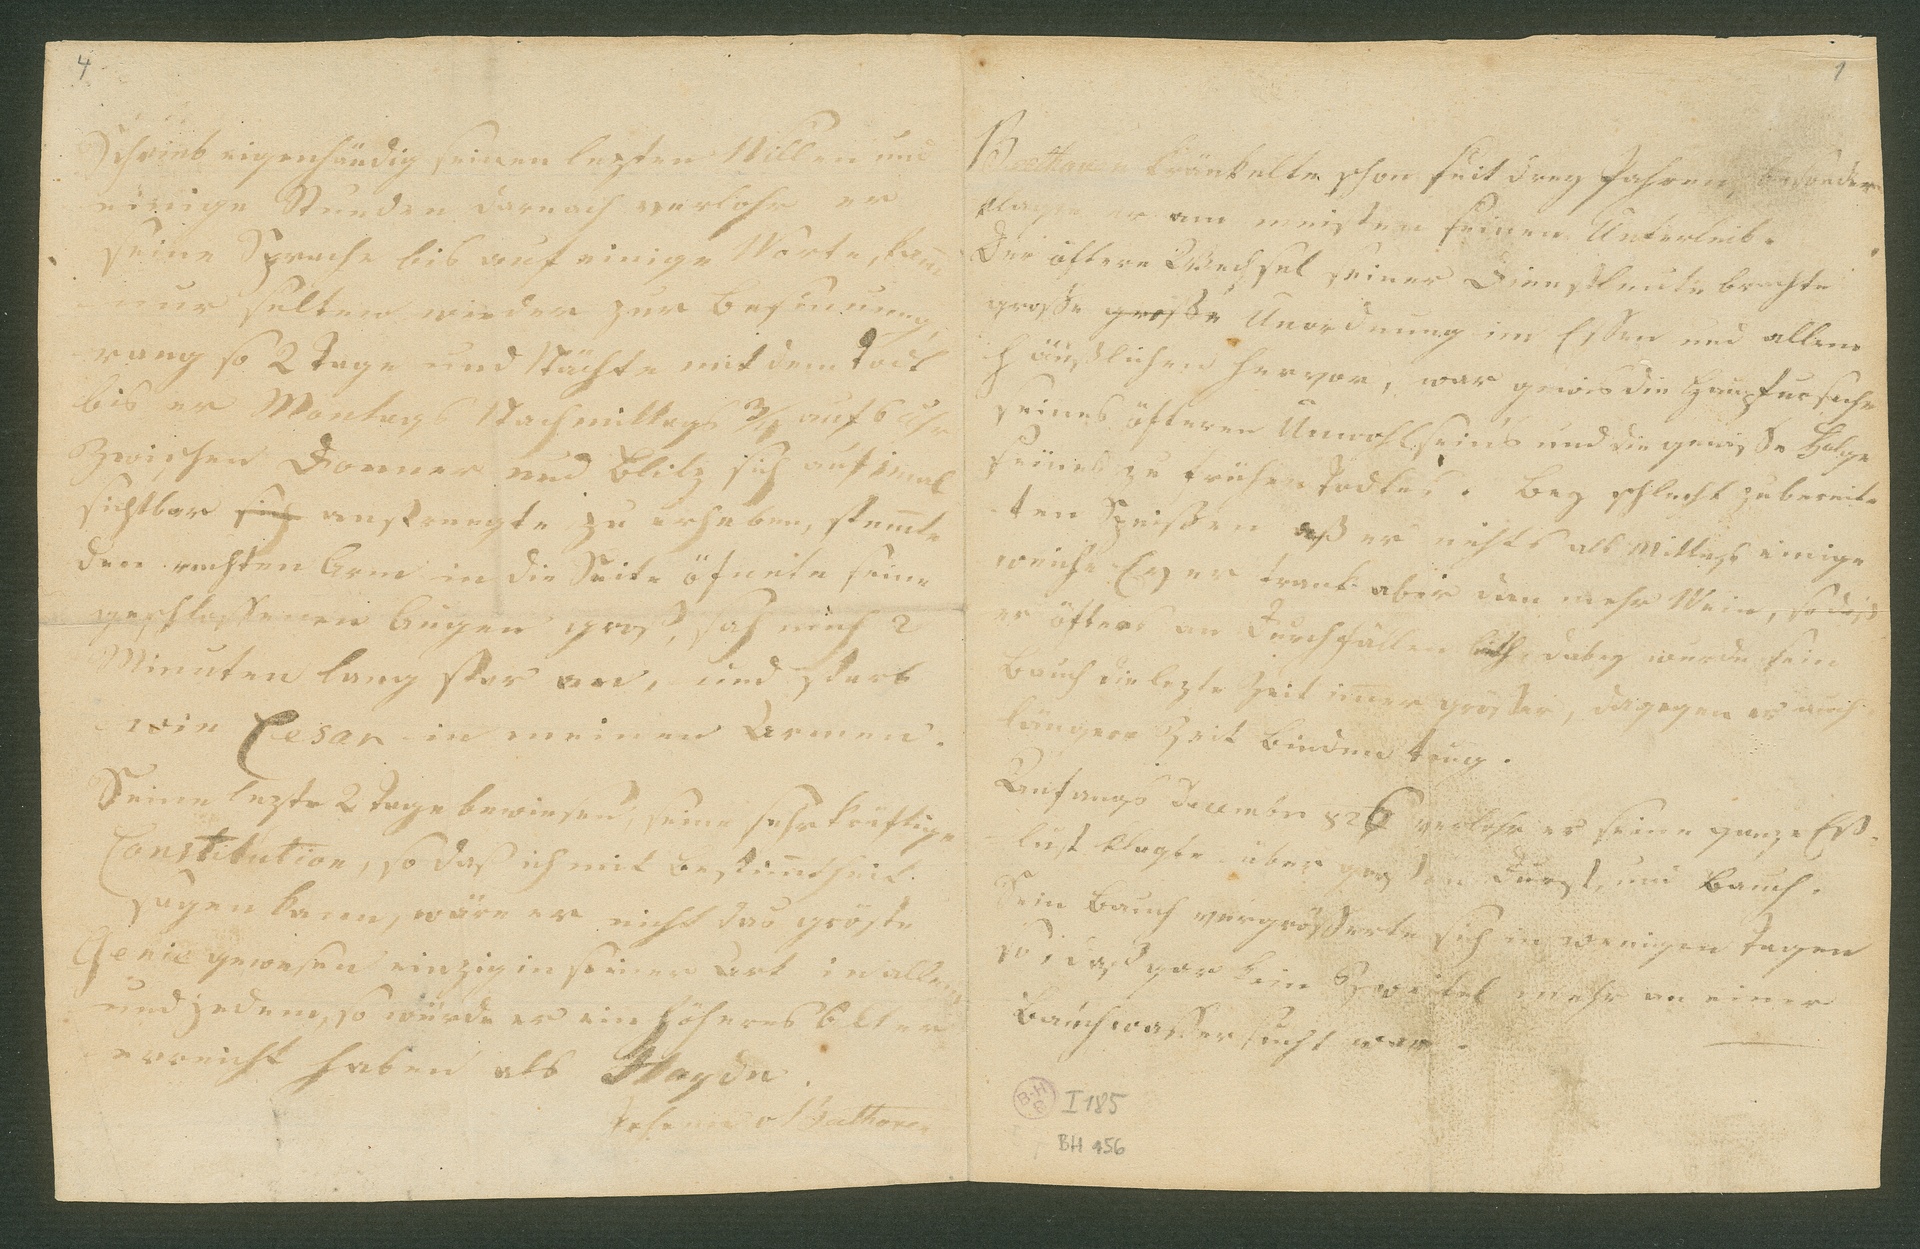 4
Schrieb eigenhändig seinen lezten Willen und
einige Stunden darnach verlohr er
seine Sprache bis auf einige Worte, kam̄
nur selten wieder zur Besinnung,
rang so 2 Tage und Nächte mit dem Tod
bis er Montags Nachmittags 3/4 auf 6 Uhr
Zwischen Donner und Blitz sich aufeinmal
sichtbar sich anstrengte zu erheben, stem̄te
den rechten Arm in die Seite öfnete seine
geschlossenen Augen groß, sah mich 2
Minuten lang star an, und starb
wie Cesar in meinen Armen.
Seine lezte 2 Tage bewiesen, seine sehr kräftige
Constitution, so daß ich mit Bestim̄theit
sagen kann, wäre er nicht das gröste
Genie gewesen einzig in seiner Art in allem
und jedem, so würde er ein höheres Alter
erreicht haben als Haydn.
Johann v Beethoven
1
Beethoven kränkelte schon seit drey Jahren, besonders
klagte er am meisten seinen Unterleib.
Der öftere Wechsel seiner Dienstleute brachte
große große Unordnung im Essen und allem
Häußlichen hervor, war gewis die Hauptursache
seines öfteren Unwohlseins und die gewisse Folge
seines zu frühen Todtes. Bey schlecht zubereite
ten Speisen aß er nichts als Mittags einige
weiche Eyer trank aber dan mehr Wein, so daß
er öfters an Durchfällen lith, dabey wurde sein
Bauch die lezte Zeit im̄er größer, dagegen er auch
längere Zeit Binden trug.
Anfangs Decembr 826 verlohr er seine ganze Eß-
lust klagte über großen Durst, und Bauch.
Sein Bauch vergrößerte sich in wenigen Tagen
so, daß gar kein Zweifel mehr an einer
Bauchwassersucht war.
B-H
I 185
BH 156